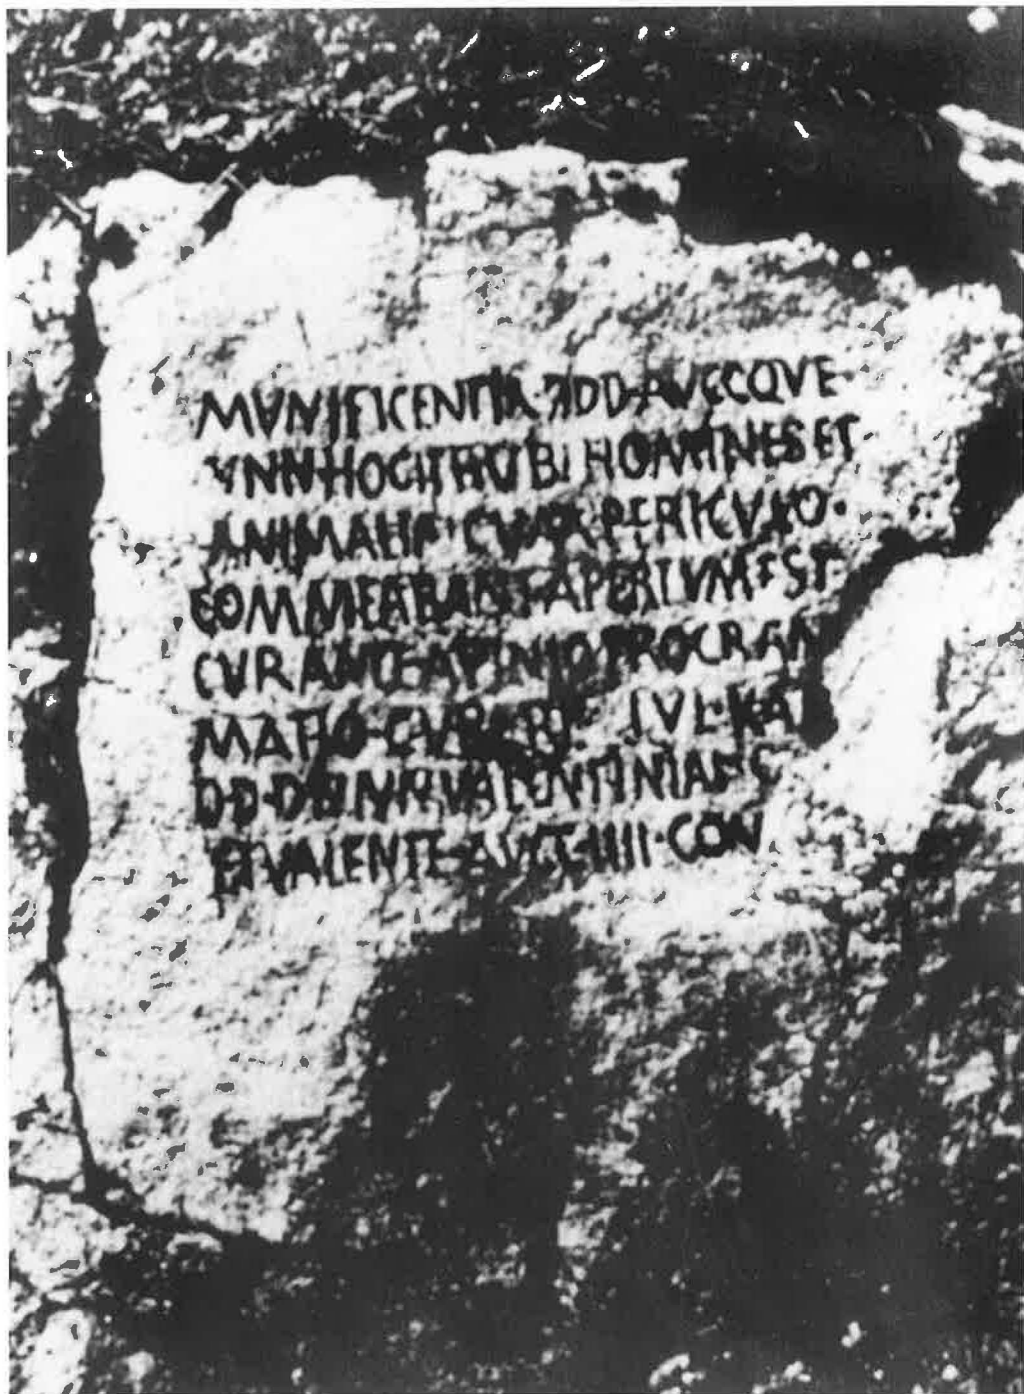 MVNIFICENTIA DD AVGGQVE
NN HOC ITER VBI HOMINES ET
ANIMALIA CVM PERICVLO·
COMMEABANT APERTVM EST
CVRANTE APINIO PROCR
IVL KAL
D·D·D·NN VALENTINIANO
ET VALENTE AVGG·IIII·CON